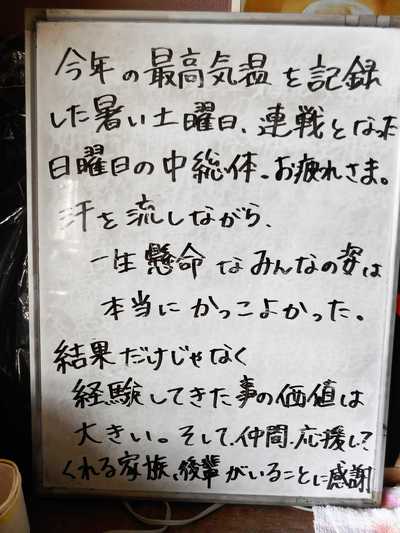 今年の最高気温を記録
した暑い土曜日、連戦となった
日曜日の中総体。お疲れさま。
汗を流しながら、
一生懸命なみんなの姿は
本当にかっこよかった。
結果だけじゃなく
経験してきた事の価値は
大きい。そして、仲間、応援して
くれる家族、後輩がいることに感謝